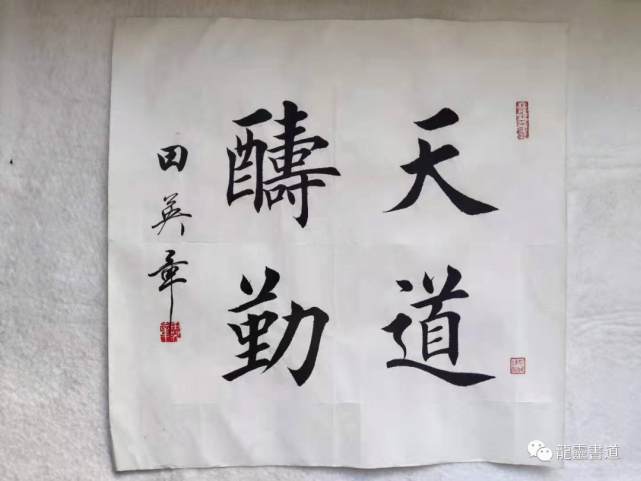 天道
醻勤
田英章
龍靈書道